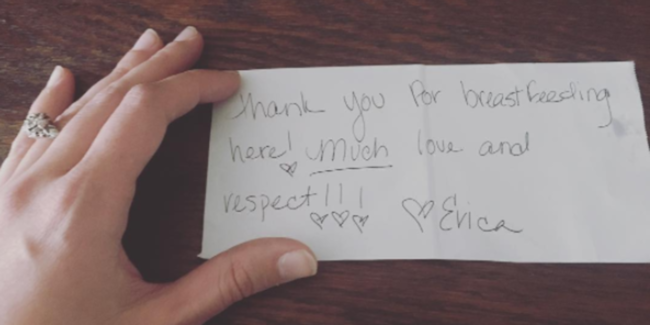 Thank you for breastfeeding
here! ♡ Much love and
respect!!! ♡♡♡ ♡ Erica